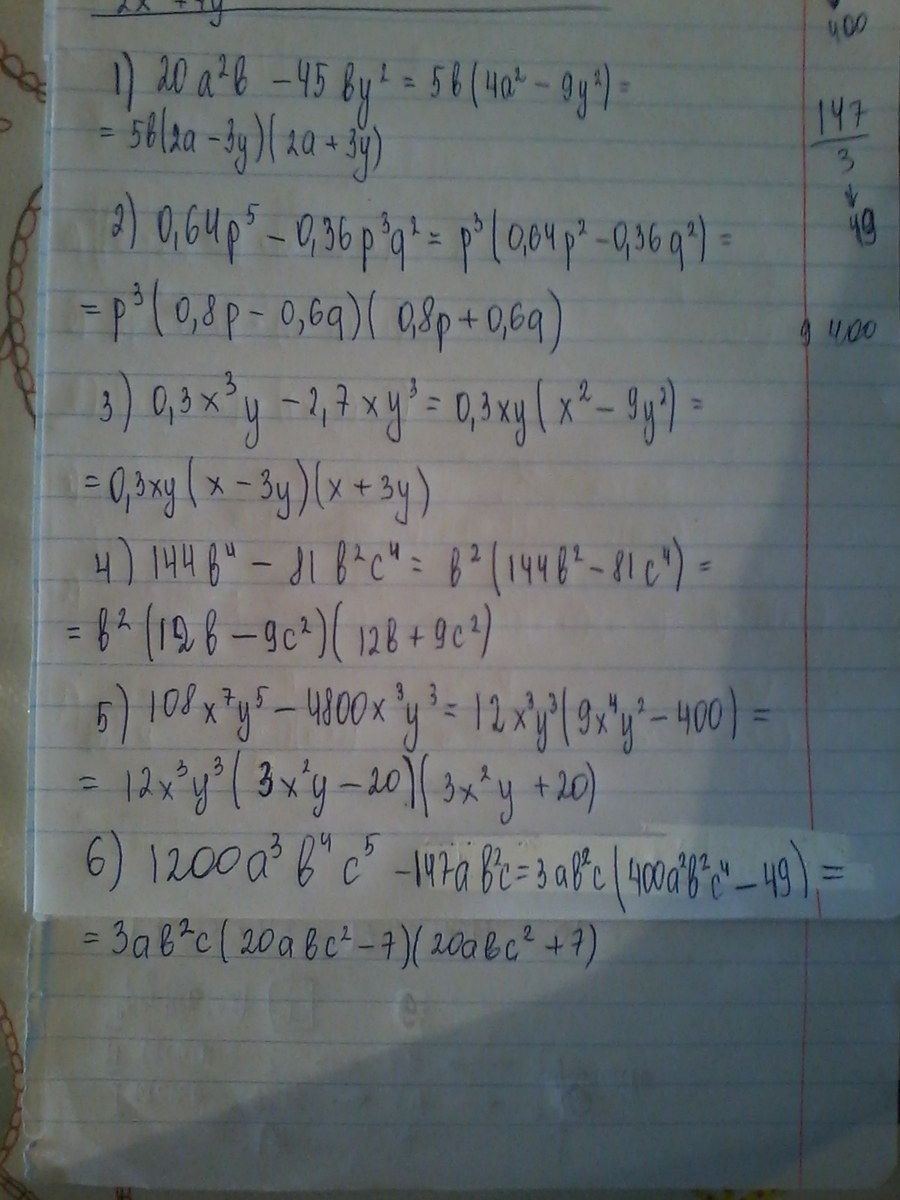 400
1) 20a²b - 45by² = 5b(4a² - 9y²) =
= 5b(2a - 3y)(2a + 3y)
147
3
49
2) 0,64p⁵ - 0,36p³q² = p³(0,64p² - 0,36q²) =
= p³(0,8p - 0,6q)(0,8p + 0,6q)
9 400
3) 0,3x³y - 2,7xy³ = 0,3xy(x² - 9y²) =
= 0,3xy(x - 3y)(x + 3y)
4) 144b⁴ - 81b²c⁴ = b²(144b² - 81c⁴) =
= b²(12b - 9c²)(12b + 9c²)
5) 108x⁷y⁵ - 4800x³y³ = 12x³y³(9x⁴y² - 400) =
= 12x³y³(3x²y - 20)(3x²y + 20)
6) 1200a³b⁴c⁵ - 147ab²c = 3ab²c(400a²b²c⁴ - 49) =
= 3ab²c(20abc² - 7)(20abc² + 7)